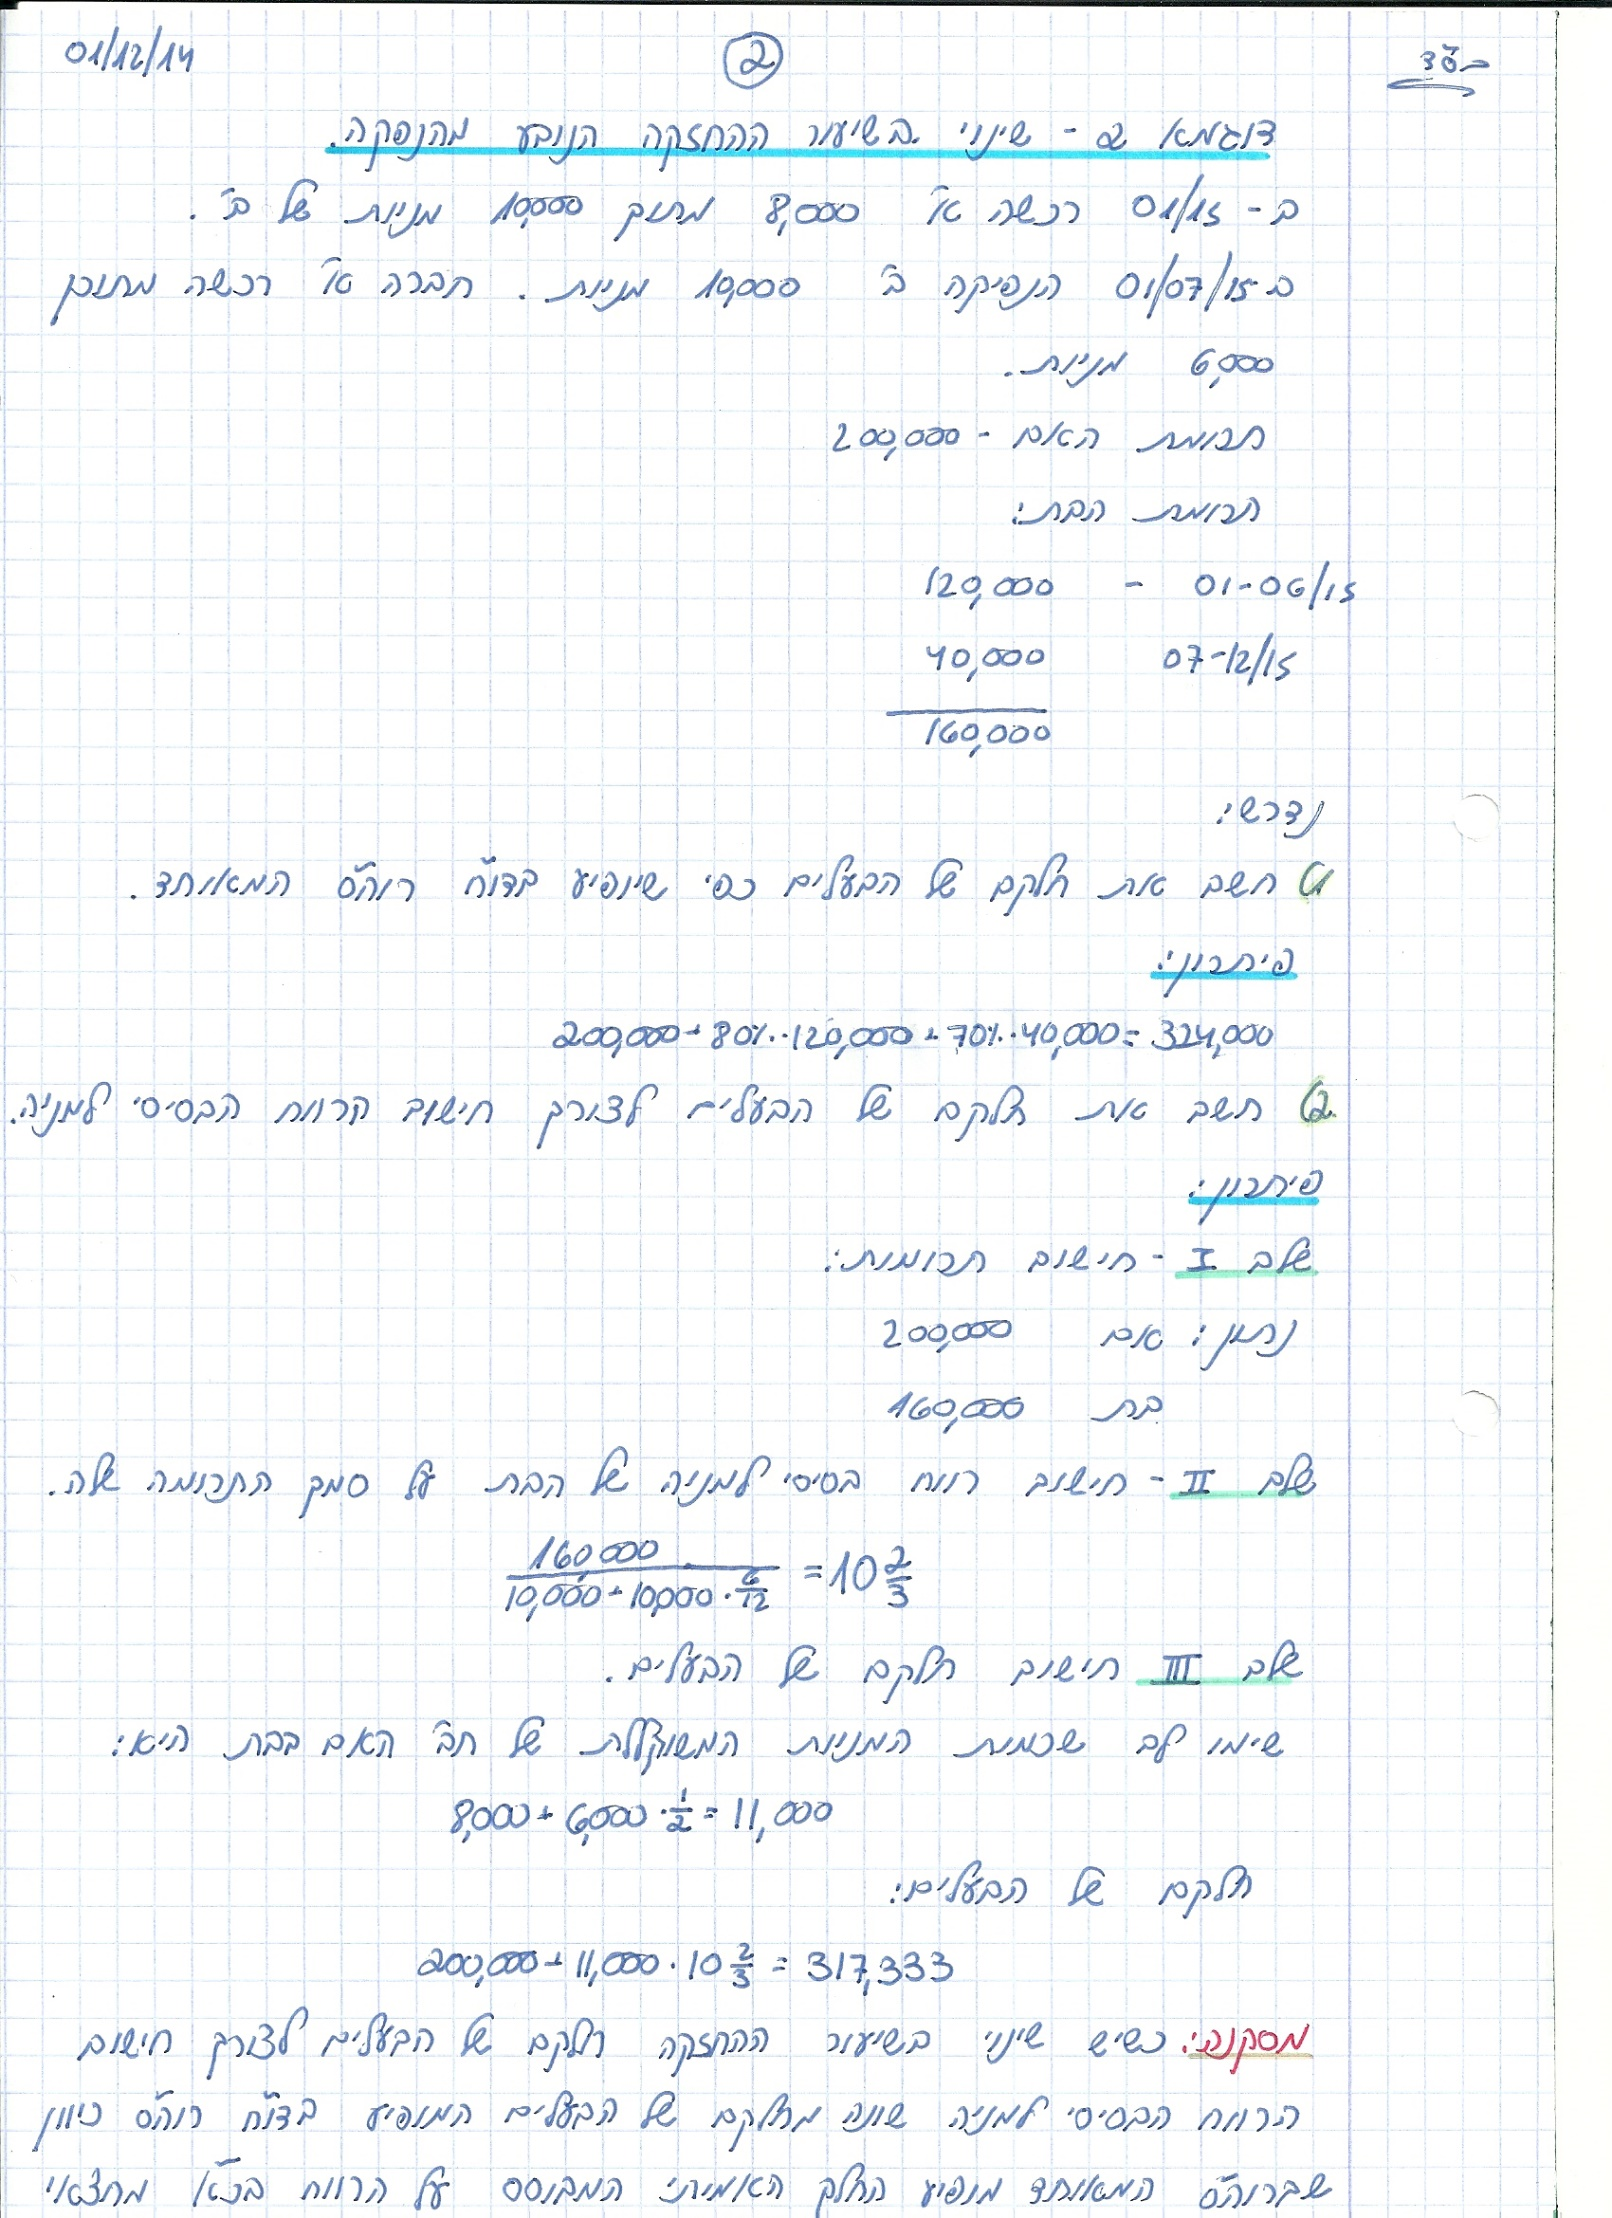 בס"ד
②
01/12/14
דוגמא 2 - שינוי בשיעור ההחזקה הנובע מהנפקה.
ב- 01/15 רכשה א' 8,000 מתוך 10,000 מניות של ב'.
ב-01/07/15 הנפיקה ב' 10,000 מניות. חברה א' רכשה מתוכן
6,000 מניות.
תרומת האם - 200,000
תרומת הבת:
01-06/15 - 120,000
07-12/15 40,000
160,000
נדרש:
1) חשב את חלקם של הבעלים כפי שיופיע בדו"ח רוה"ס המאוחד.
פיתרון:
200,000+80%·120,000+70%·40,000=324,000
2) חשב את חלקם של הבעלים לצורך חישוב הרווח הבסיסי למניה.
פיתרון:
שלב I - חישוב תרומות:
נתון: אם 200,000
בת 160,000
שלב II - חישוב רווח בסיסי למניה של הבת על סמך התרומה שלה.
160,000 / (10,000+10,000·6/12) = 10 2/3
שלב III חישוב חלקם של הבעלים.
שימו לב שכמות המניות המשוקללת של חב' האם בבת היא:
8,000+6,000·1/2=11,000
חלקם של הבעלים:
200,000+11,000·10 2/3=317,333
מסקנה: כשיש שינוי בשיעור ההחזקה חלקם של הבעלים לצורך חישוב
הרווח הבסיסי למניה שונה מחלקם של הבעלים המופיע בדו"ח רוה"ס כיוון
שברוה"ס המאוחד מופיע החלק האמיתי המבוסס על הרווח בכ"א מחצאי